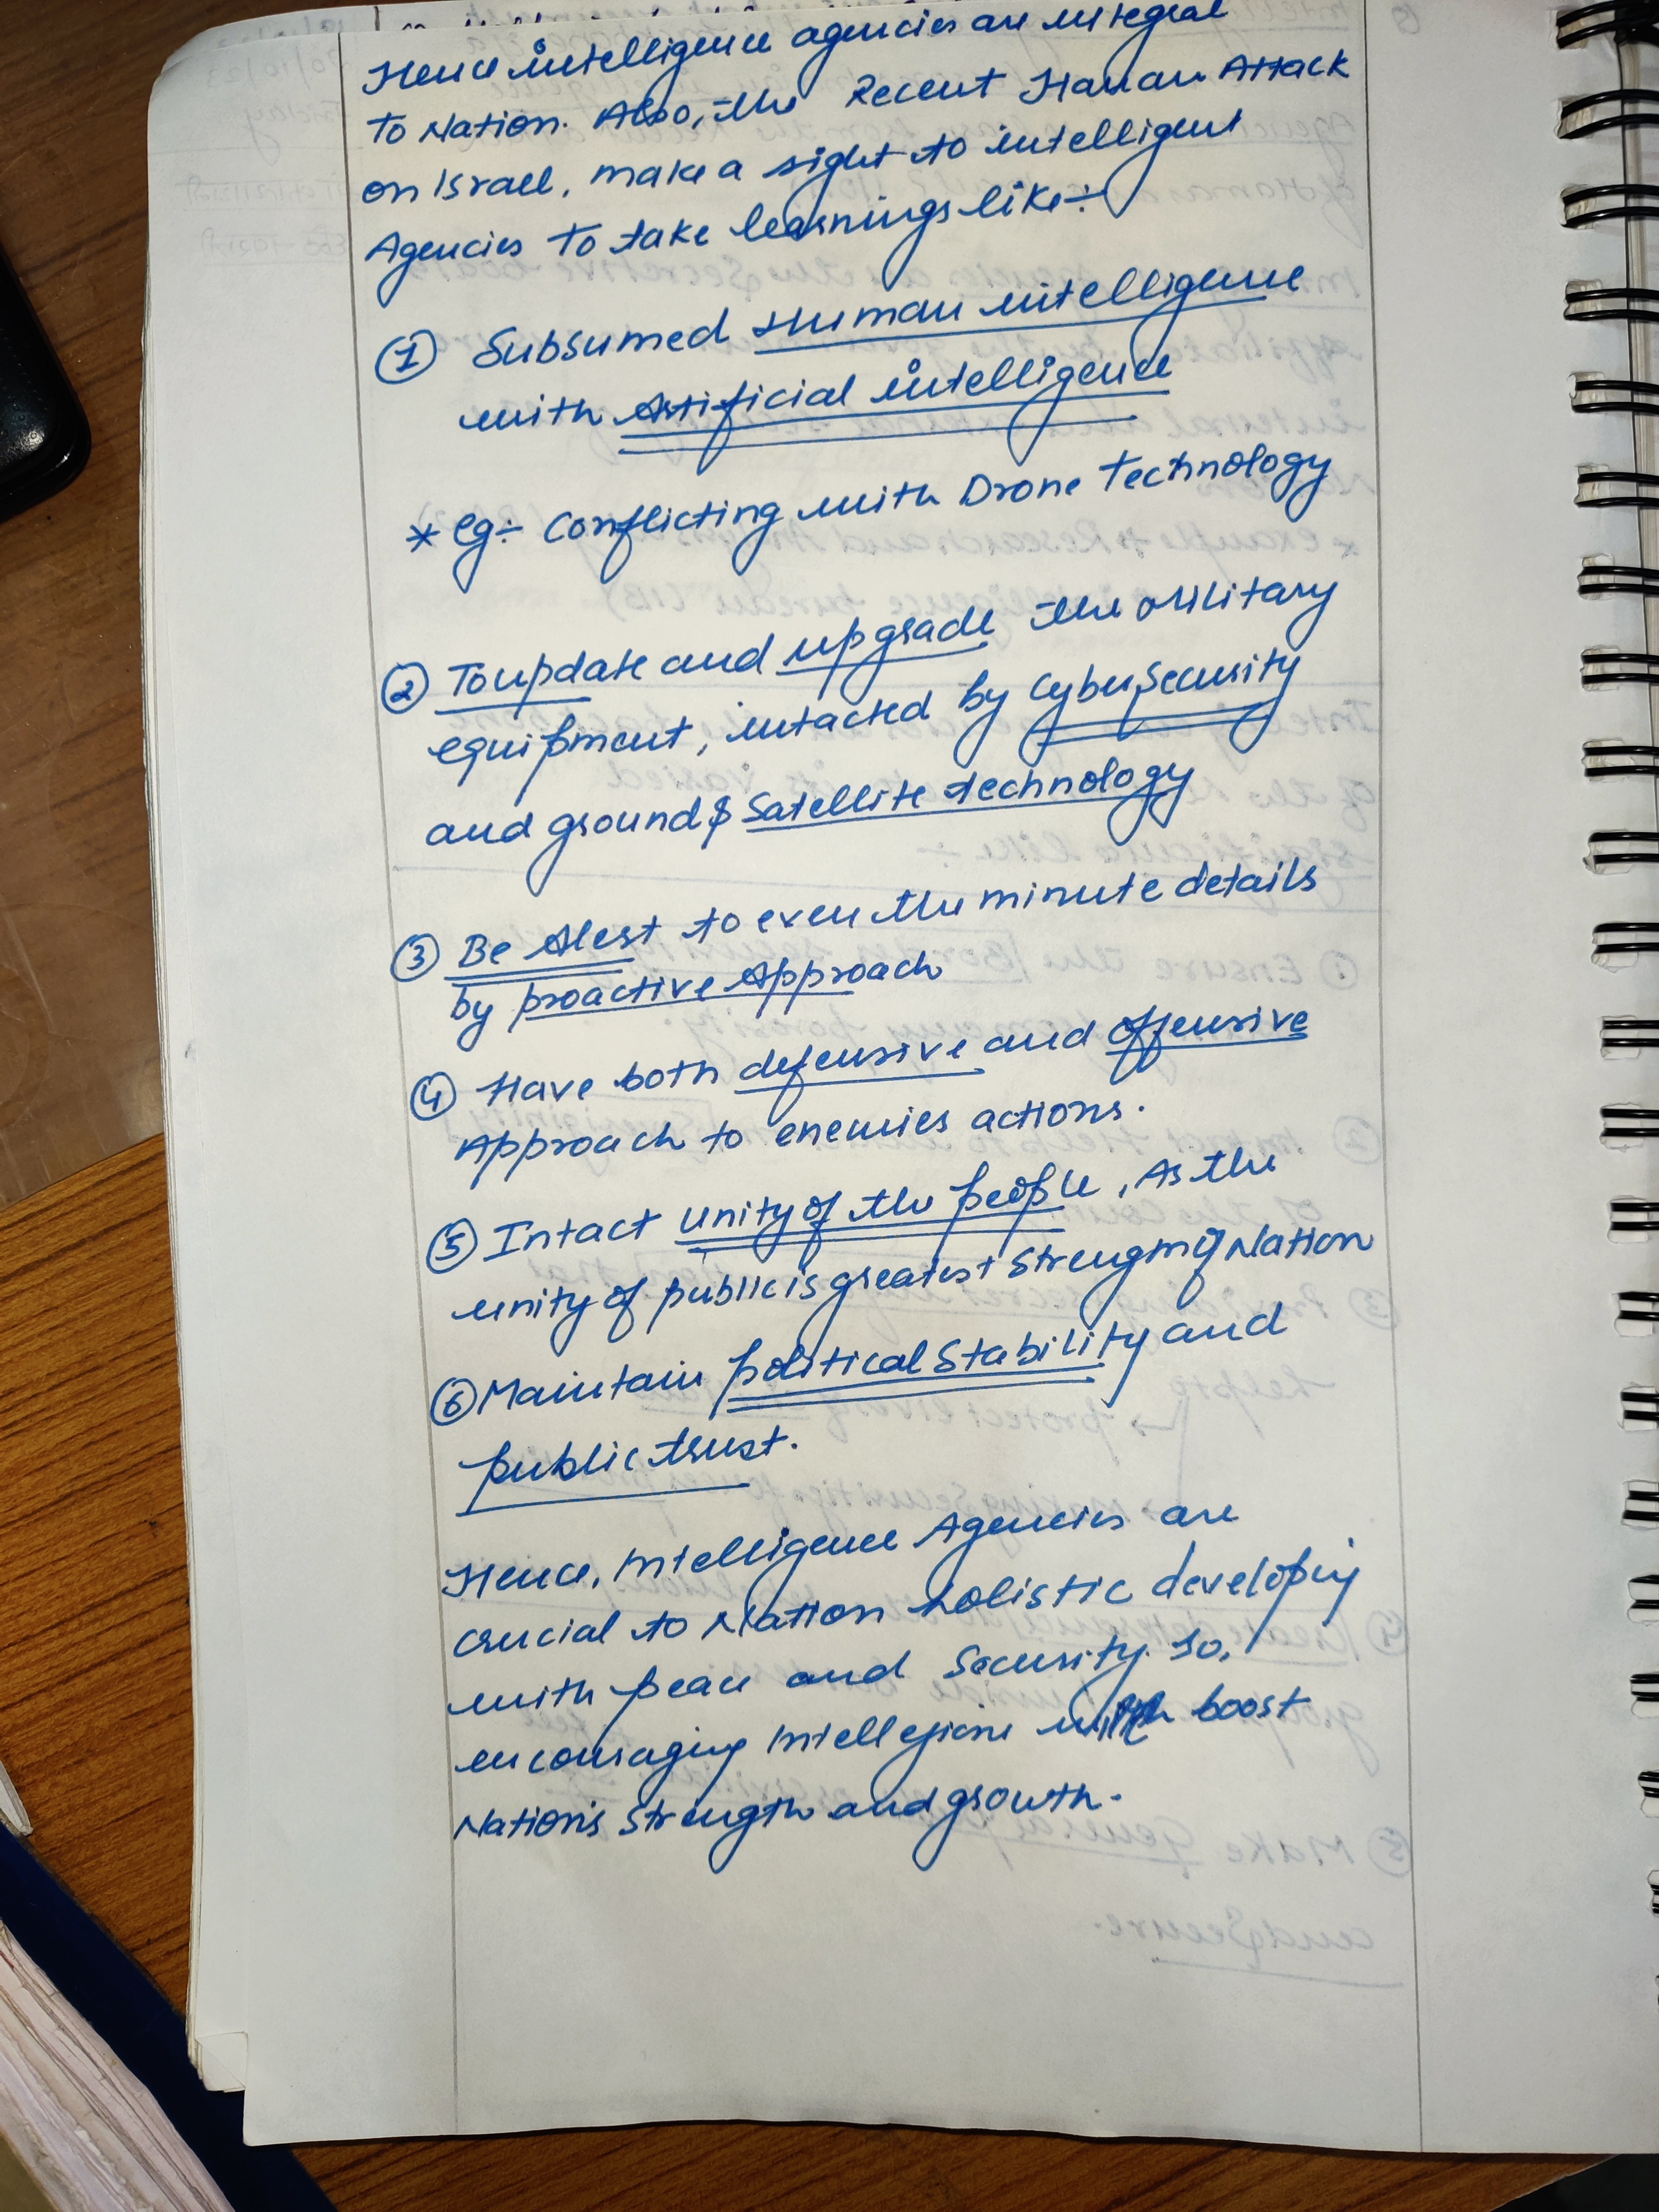 Hence intelligence agencies are integral
To Nation. Also, the Recent Hamas Attack
on Israel, make a sight to intelligent
Agencies to take learnings like÷
① Subsumed Human intelligence
with Artificial intelligence
* eg÷ Conflicting with Drone Technology
② To update and upgrade the Military
equipment, intacted by Cyber Security
and ground & Satellite technology
③ Be Alert to even the minute details
by proactive Approach
④ Have both defensive and offensive
Approach to enemies actions.
⑤ Intact unity of the people, As the
unity of public is greatest Strength of Nation
⑥ Maintain political Stability and
public trust.
Hence, Intelligence Agencies are
crucial to Nation holistic developing
with peace and Security. So,
encouraging boost
Nation's Strength and growth.